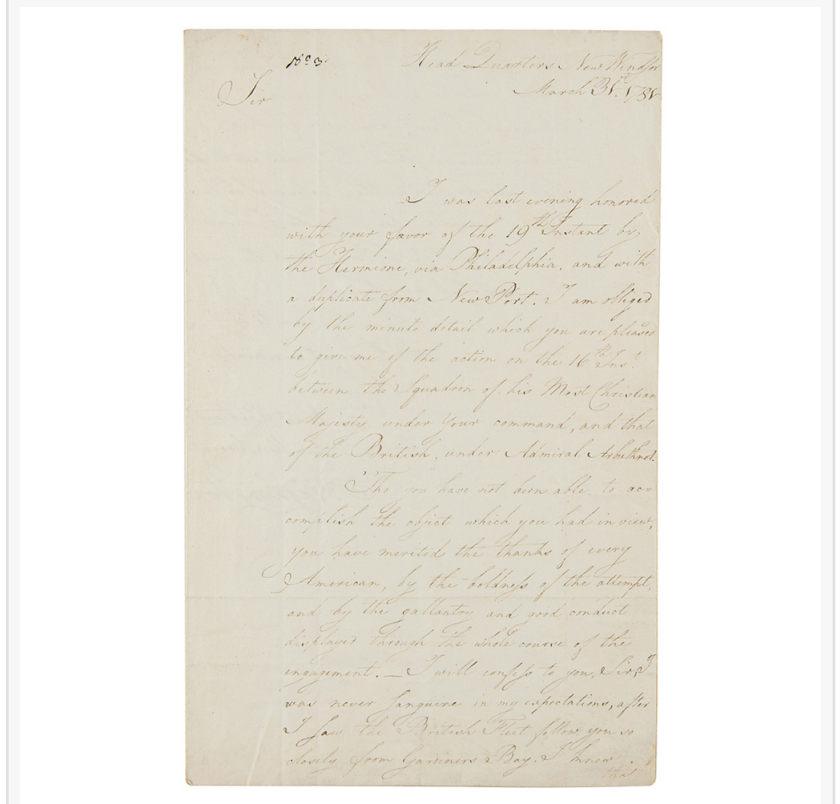 No 3.
Head Quarters New Windsor
March 31st 1781
Sir
I was last evening honored
with your favor of the 19th Instant by
the Hermione, via Philadelphia, and with
a duplicate from New Port. I am obliged
by the minute detail which you are pleased
to give me of the action on the 16th Inst.
between the Squadron of his Most Christian
Majesty under your command, and that
of the British, under Admiral Arbuthnot.
Tho you have not been able to ac=
complish the object which you had in view,
you have merited the thanks of every
American, by the boldness of the attempt,
and by the gallantry and good conduct
displayed through the whole course of the
engagement. — I will confess to you, Sir, I
was never sanguine in my expectations, after
I saw the British Fleet follow you so
closely from Gardiners Bay. I knew
that